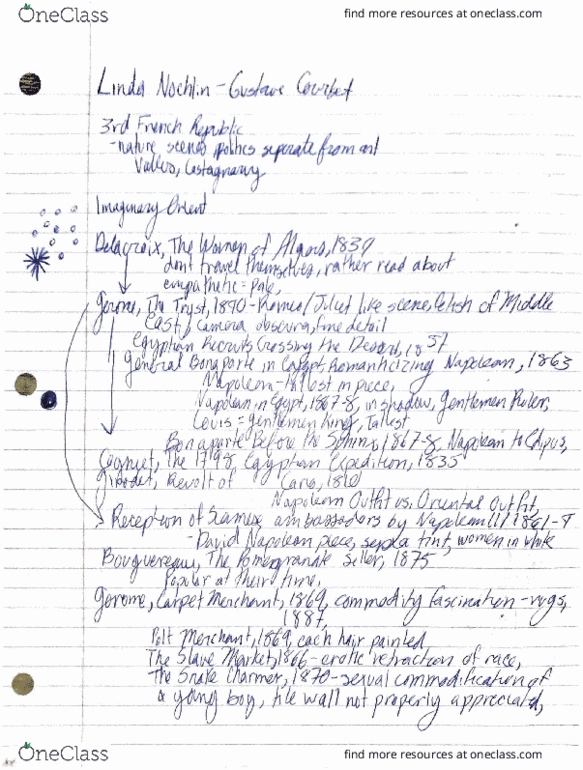 OneClass
find more resources at oneclass.com
Linda Nochlin - Gustave Courbet
3rd French Republic
- nature scenes, politics seperate from art
Valles, Castagnary
Imaginary Orient
Delacroix, The Women of Algiers, 1834
dont travel themselves, rather read about
empathetic = pale,
Gerome, The Tryst, 1840 - Romeo/Juliet like scene, fetish of Middle
East, camera obscura, fine detail
Egyptian Recruits Crossing the Desert, 1857
General Bonaparte in Egypt, Romanticizing Napoleon, 1863
Napoleon - tallest in piece,
Napolean in Egypt, 1867-8, in shadow, Gentlemen Ruler,
Louis = gentlemen King, Tallest
Bonaparte Before the Sphinx, 1867-8, Napolean to Edipus,
Cogniet, The 1798 Egyptian Expedition, 1835
Girodet, Revolt of Cairo, 1810
Napolean Outfit vs. Oriental Outfit,
Reception of Siamese ambassadors by Napolean III 1861-4
- David Napolean piece, sepia tint, women in white
Bouguereau, The Pomegranate Seller, 1875
Popular at their time,
Gerome, Carpet Merchant, 1869, commodity fascination - rugs,
1887,
Pelt Merchant, 1869, each hair painted
The Slave Market, 1866 - erotic retraction of race,
The Snake Charmer, 1870 - sexual commodification of
a young boy, tile wall not properly appreciated,
OneClass
find more resources at oneclass.com